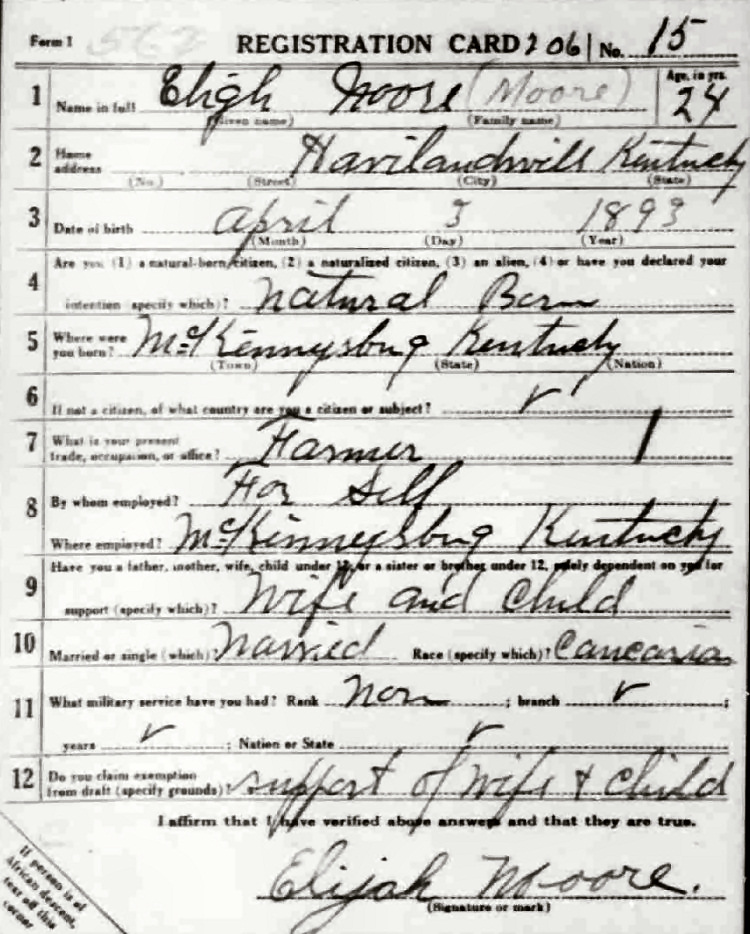 Form 1 562 REGISTRATION CARD 206 No. 15
1 Name in full Eligh Moore (Moore) Age, in yrs. 24
(Given name) (Family name)
2 Home address Havilandvill Kentucky
(No.) (Street) (City) (State)
3 Date of birth April 3 1893
(Month) (Day) (Year)
4 Are you (1) a natural-born citizen, (2) a naturalized citizen, (3) an alien, (4) or have you declared your
intention (specify which)? Natural Born
5 Where were you born? McKennysbug Kentucky
(Town) (State) (Nation)
6 If not a citizen, of what country are you a citizen or subject? ✓
7 What is your present trade, occupation, or office? Farmer
8 By whom employed? For Self
Where employed? McKinneysbug Kentucky
9 Have you a father, mother, wife, child under 12, or a sister or brother under 12, solely dependent on you for
support (specify which)? Wife and Child
10 Married or single (which)? Married Race (specify which)? Caucasian
11 What military service have you had? Rank Non ; branch ✓ ;
years ✓ ; Nation or State ✓
12 Do you claim exemption from draft (specify grounds)? support of Wife + Child
I affirm that I have verified above answers and that they are true.
Elijah Moore.
(Signature or mark)
If person is of
African descent,
tear off this
corner